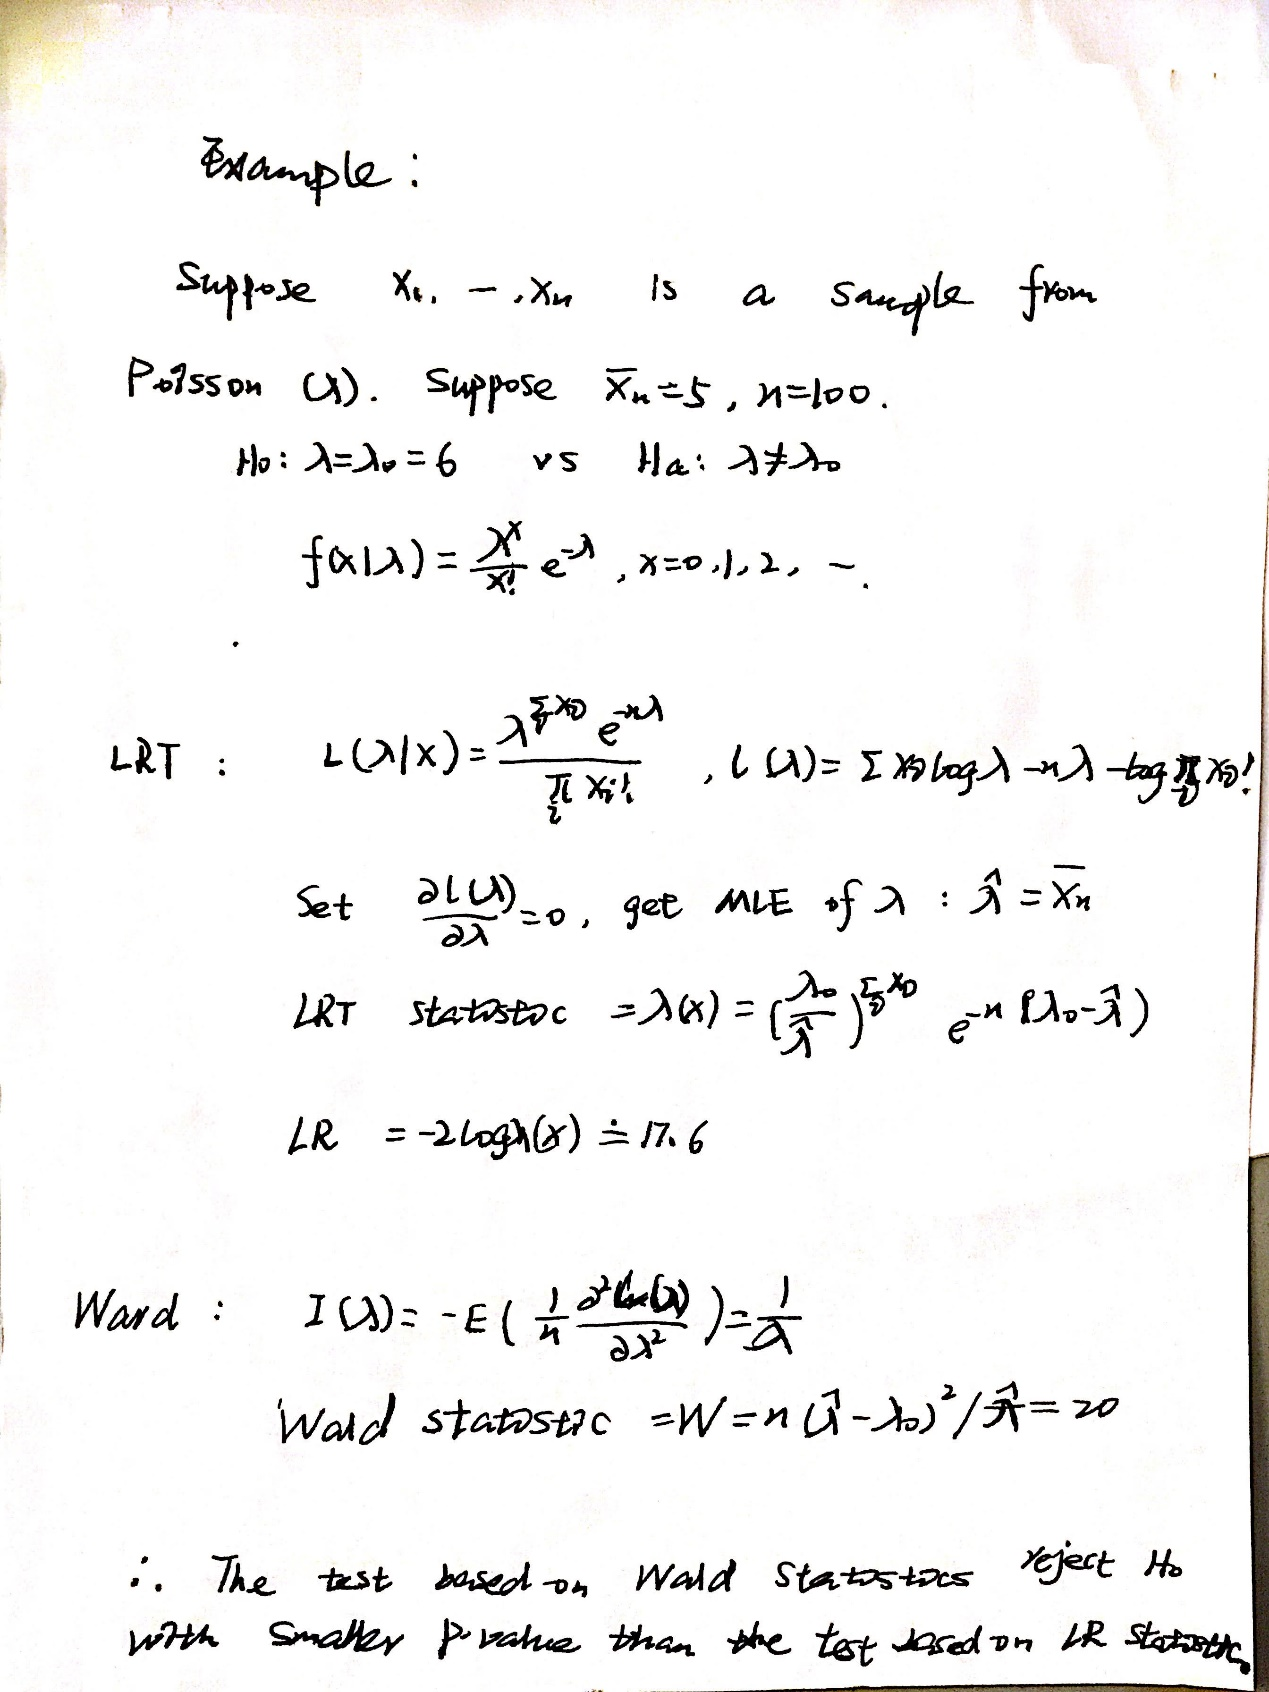 Example :
Suppose X₁, -, Xn is a sample from
Poisson (λ). Suppose X̄n=5, n=100.
H₀: λ=λ₀=6 vs Ha: λ≠λ₀
f(x|λ) = λ^x/x! e^-λ, x=0,1,2, -.
LRT : L(λ|x) = λ^Σxi e^-nλ / ∏ xi! , l(λ) = Σ xi log λ - nλ - log ∏ xi!
Set ∂l(λ)/∂λ = 0, get MLE of λ : λ̂ = X̄n
LRT statistic = λ(x) = (λ₀/λ̂)^Σxi e^-n(λ₀-λ̂)
LR = -2logλ(x) ≐ 17.6
Ward : I(λ) = -E( 1/n ∂²ln(λ)/∂λ² ) = 1/λ
Wald statistic = W = n(λ̂-λ₀)²/λ̂ = 20
∴ The test based on Wald Statistics reject H₀
with smaller p-value than the test based on LR statistic.